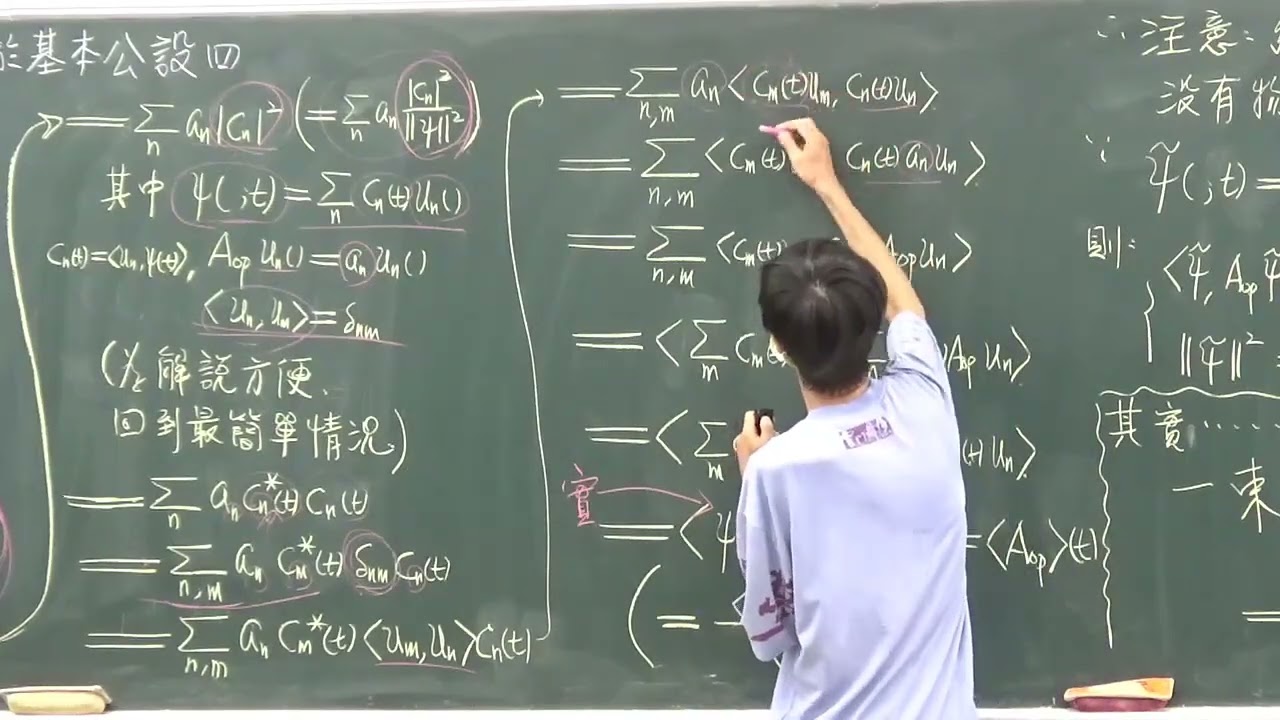 於基本公設四
= ∑_n a_n |C_n|² (= ∑_n a_n |C_n|²/‖ψ‖²)
其中 ψ( ;t) = ∑_n C_n(t) U_n()
C_n(t) = <U_n, ψ(t)>, A_op U_n() = a_n U_n()
<U_n, U_m> = δ_nm
(為解說方便、
回到最簡單情況、)
= ∑_n a_n C_n*(t) C_n(t)
= ∑_{n,m} a_n C_m*(t) δ_nm C_n(t)
= ∑_{n,m} a_n C_m*(t) <U_m, U_n> C_n(t)
= ∑_{n,m} a_n <C_m(t) U_m, C_n(t) U_n>
= ∑_{n,m} <C_m(t) C_n(t) a_n U_n>
= ∑_{n,m} <C_m(t) A_op U_n>
= <∑_m C_m A_op U_n>
= <∑_m (t) U_n>
實
= <ψ = <A_op>(t)
(=
∴ 注意:
沒有物
∵ ψ̃( ;t) =
則:
<ψ̃, A_op ψ̃
‖ψ̃‖² =
其實……
一束
=